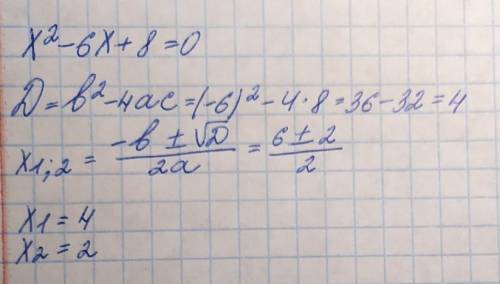 x² - 6x + 8 = 0
D = b² - 4ac = (-6)² - 4·8 = 36 - 32 = 4
x1;2 = (-b ± √D)/2a = (6 ± 2)/2
x1 = 4
x2 = 2